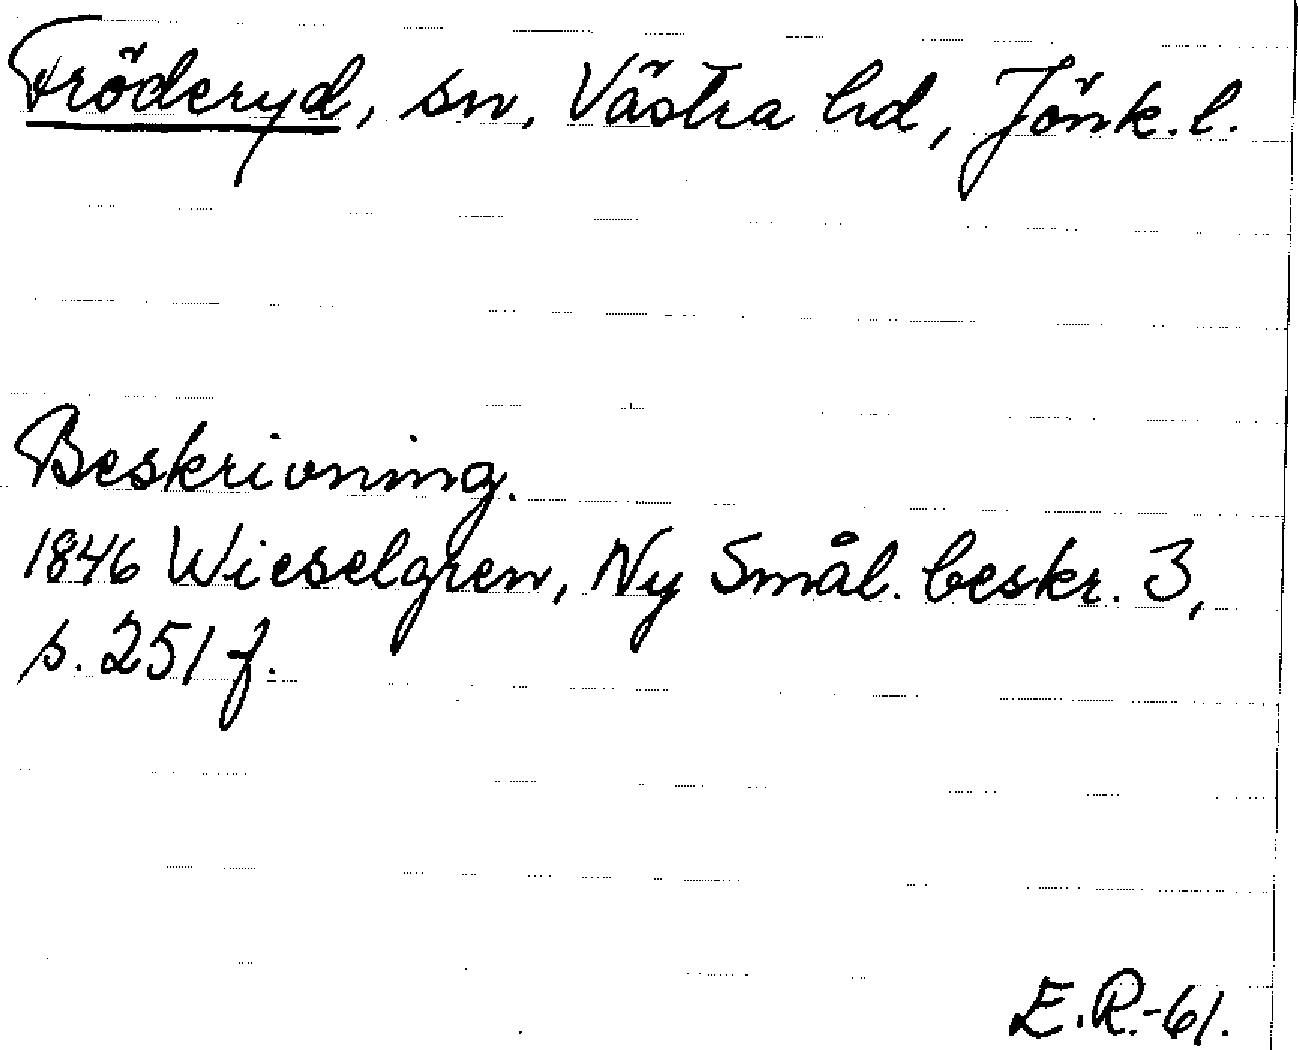 Fröderyd, sn, Västra hd, Jönk. l.
Beskrivning.
1846 Wieselgren, Ny Smål. beskr. 3,
s. 251 f.
E.R.-61.